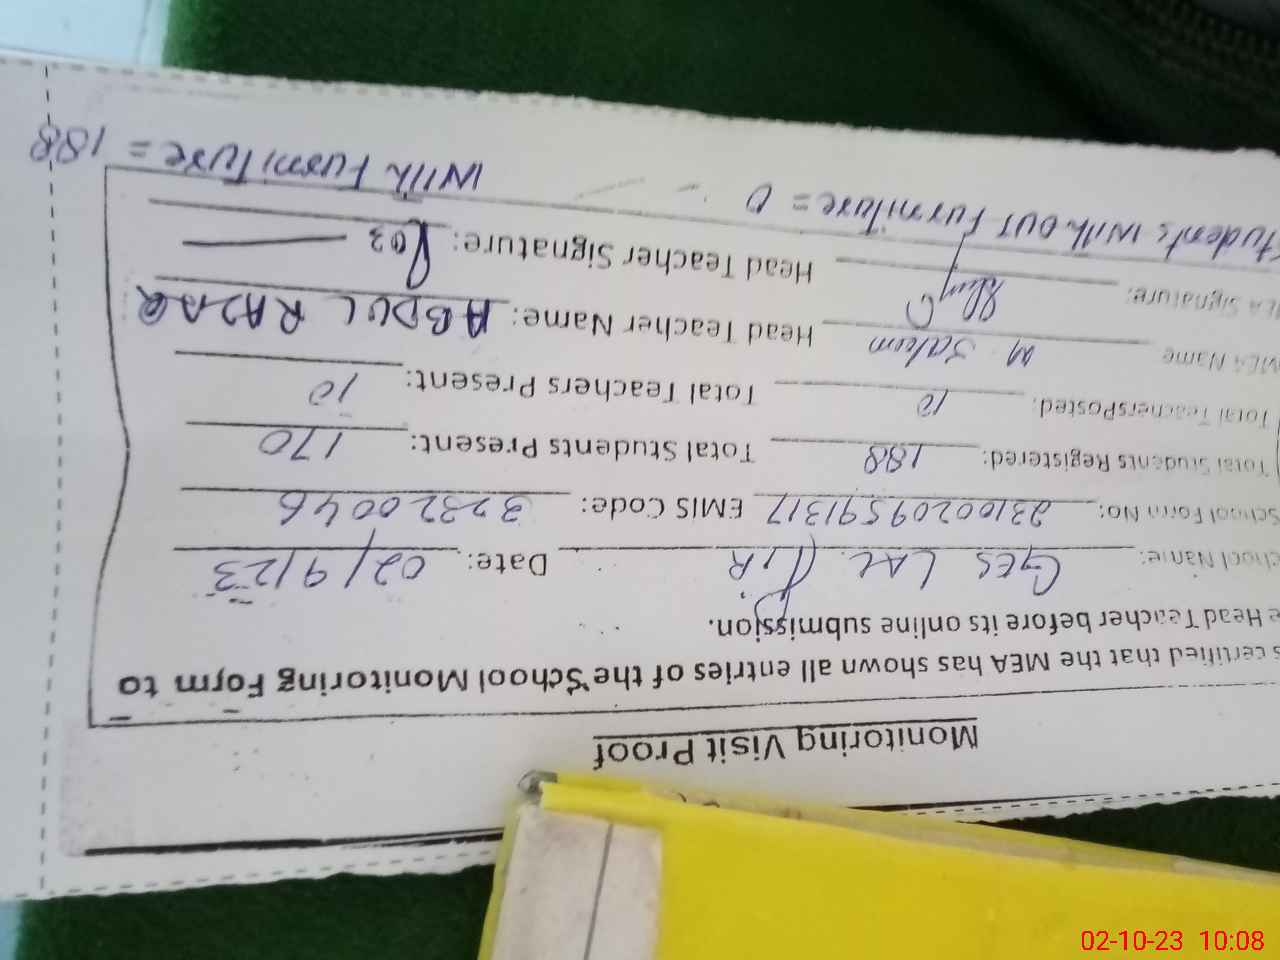 Monitoring Visit Proof
s certified that the MEA has shown all entries of the School Monitoring Form to
e Head Teacher before its online submission.
chool Name: GES LAL PIR Date: 02/9/23
School Form No: 23100209591317 EMIS Code: 32320046
Total Students Registered: 188 Total Students Present: 170
Total TeachersPosted: 10 Total Teachers Present: 10
MEA Name M. Salum Head Teacher Name: ABDUL RAZAQ
EA Signature: Head Teacher Signature:
tudents With out Furniture = 0 With Furniture = 188
02-10-23 10:08